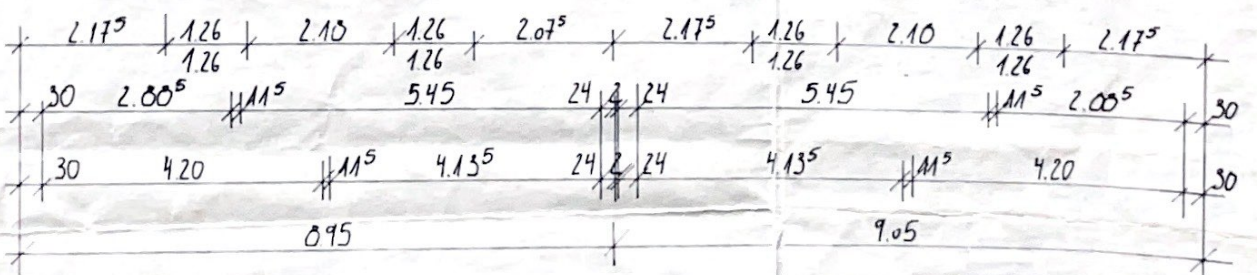 2.17⁵ 1.26 2.18 1.26 2.07⁵ 2.17⁵ 1.26 2.18 1.26 2.17⁵
1.26 1.26 1.26 1.26
30 2.88⁵ 11⁵ 5.45 24 2 24 5.45 11⁵ 2.88⁵ 30
30 4.20 11⁵ 4.13⁵ 24 2 24 4.13⁵ 11⁵ 4.20 30
8.95 9.05